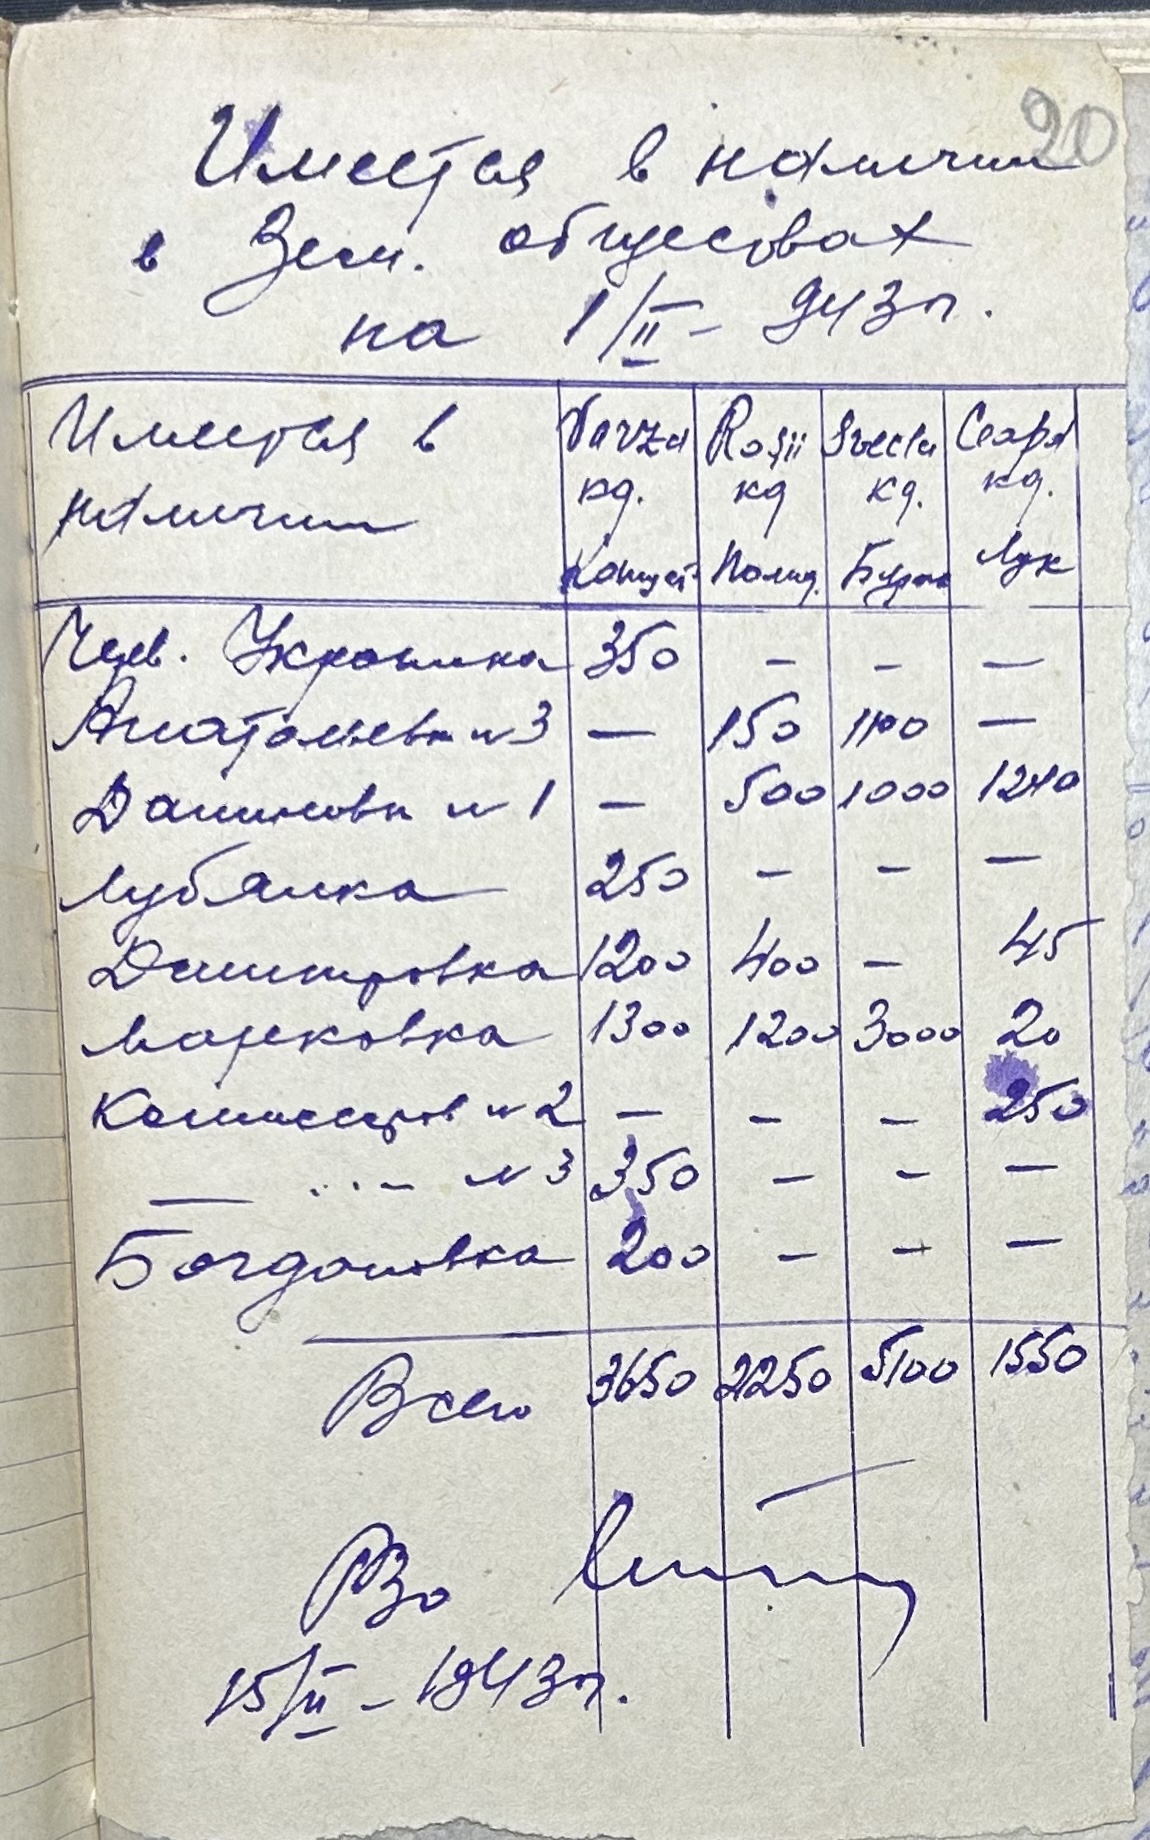 20
Имеется в наличии
в Зем. обществах
на 1/II - 943 г.
Имеется в наличии | Varza кг. Капуст. | Roşii кг Помид. | Svecla кг. Буряк | Ceapa кг. Лук
Черв. Украинка 350 - - -
Анатольевк N 3 - 150 1100 -
Даниловк N 1 - 500 1000 1240
Лубянка 250 - - -
Дмитровка 1200 400 - 45
Марковка 1300 1200 3000 20
Комиссаров N 2 - - - 250
— " — N 3 350 - - -
Богдановка 200 - - -
Всего 3650 2250 5100 1550
РЗО
15/II - 1943 г.